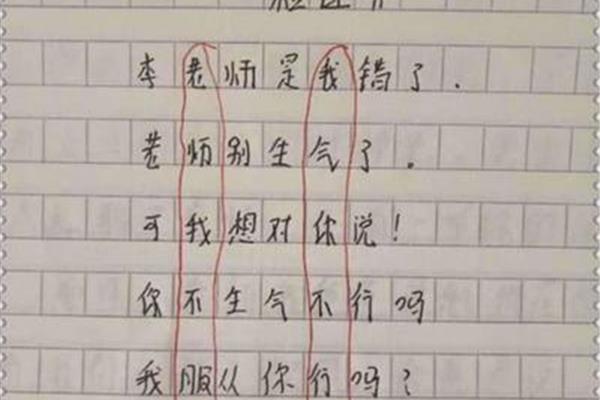 李老师是我错了.
老师别生气了.
可我想对你说!
你不生气不行吗
我服从你行吗?